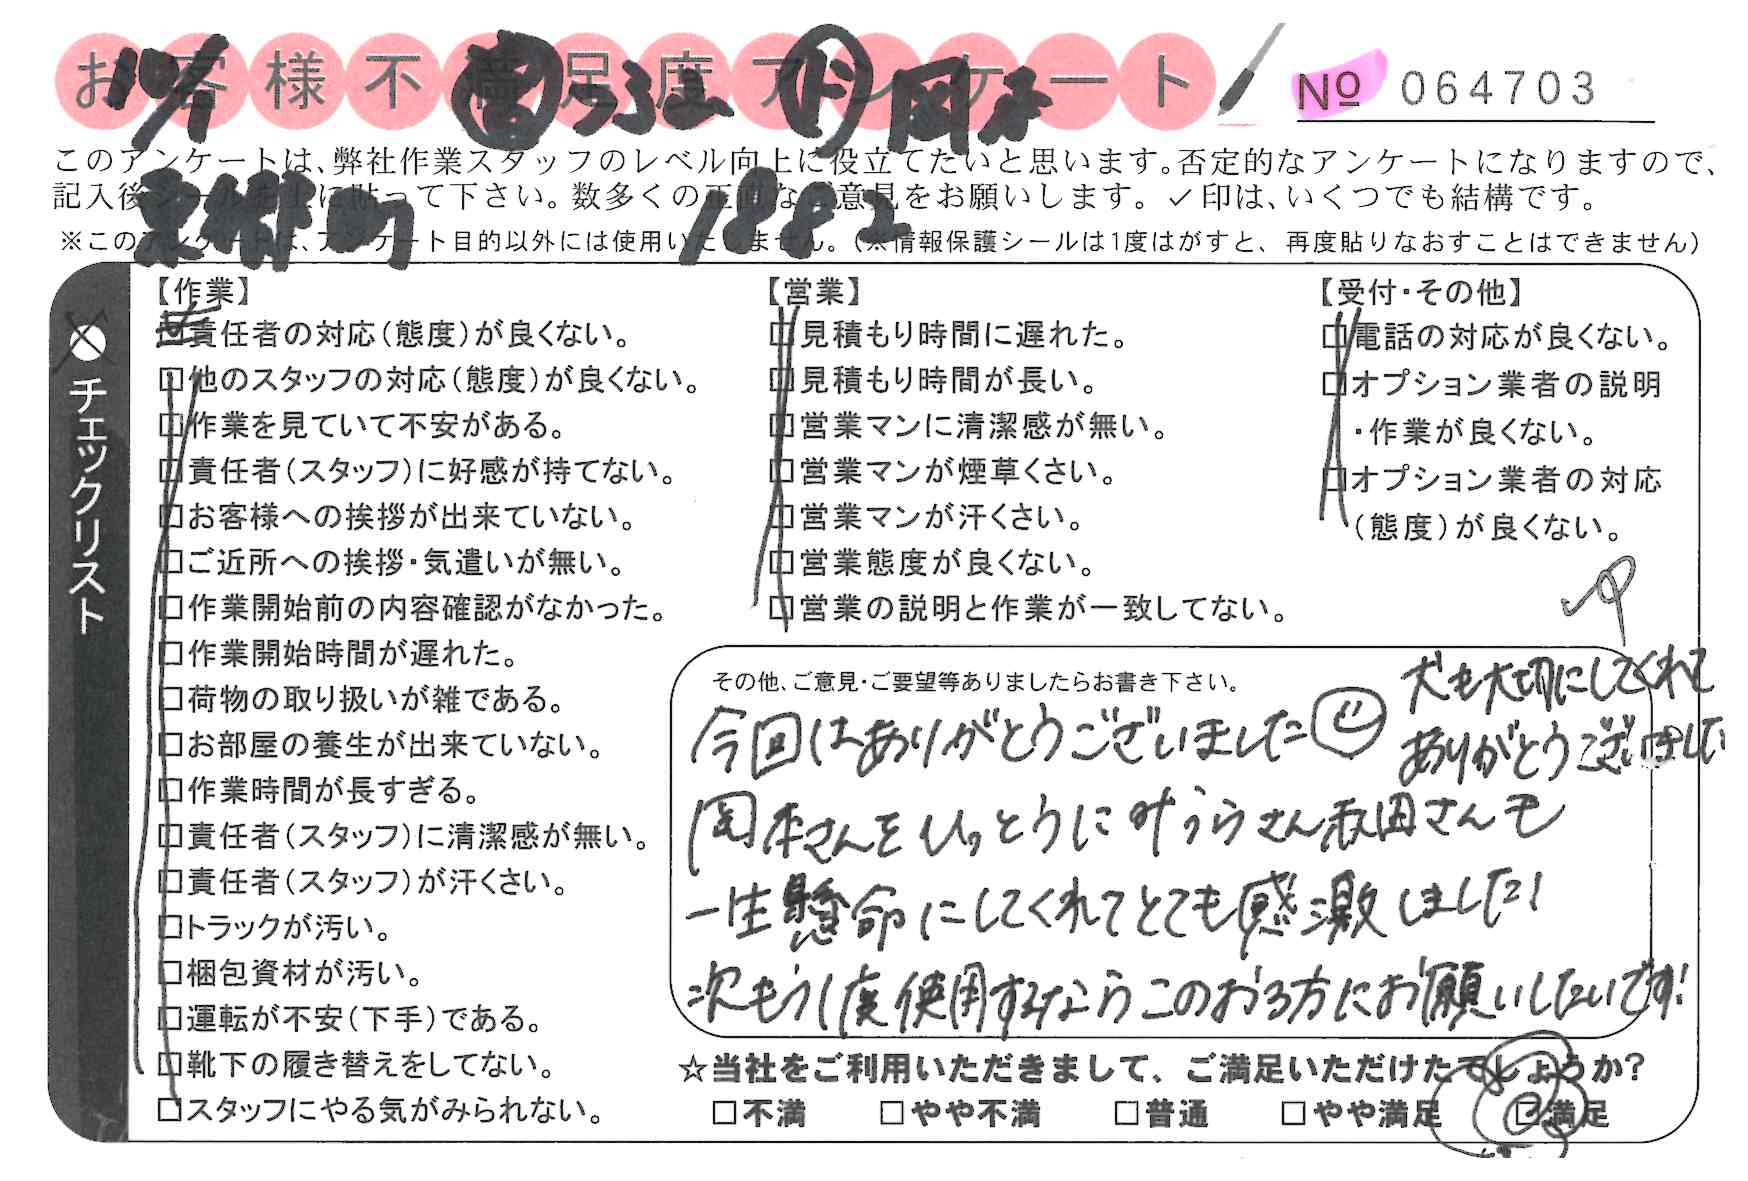 お客様不満足度アンケート
No 064703
このアンケートは、弊社作業スタッフのレベル向上に役立てたいと思います。否定的なアンケートになりますので、
記入後シールを上に貼って下さい。数多くの正直なご意見をお願いします。✓印は、いくつでも結構です。
1882
※このアンケートは、アンケート目的以外には使用いたしません。(※情報保護シールは1度はがすと、再度貼りなおすことはできません)
チェックリスト
【作業】
□責任者の対応(態度)が良くない。
□他のスタッフの対応(態度)が良くない。
□作業を見ていて不安がある。
□責任者(スタッフ)に好感が持てない。
□お客様への挨拶が出来ていない。
□ご近所への挨拶・気遣いが無い。
□作業開始前の内容確認がなかった。
□作業開始時間が遅れた。
□荷物の取り扱いが雑である。
□お部屋の養生が出来ていない。
□作業時間が長すぎる。
□責任者(スタッフ)に清潔感が無い。
□責任者(スタッフ)が汗くさい。
□トラックが汚い。
□梱包資材が汚い。
□運転が不安(下手)である。
□靴下の履き替えをしてない。
□スタッフにやる気がみられない。
【営業】
□見積もり時間に遅れた。
□見積もり時間が長い。
□営業マンに清潔感が無い。
□営業マンが煙草くさい。
□営業マンが汗くさい。
□営業態度が良くない。
□営業の説明と作業が一致してない。
【受付・その他】
□電話の対応が良くない。
□オプション業者の説明
・作業が良くない。
□オプション業者の対応
(態度)が良くない。
その他、ご意見・ご要望等ありましたらお書き下さい。
犬も大切にしてくれて
ありがとうございました
今回はありがとうございました
岡本さんをひっとうに みうらさん 秋田さんも
一生懸命にしてくれてとても感激しました!
次もう1度使用するならこのお3方にお願いしたいです!
☆当社をご利用いただきまして、ご満足いただけたでしょうか?
□不満 □やや不満 □普通 □やや満足 □満足